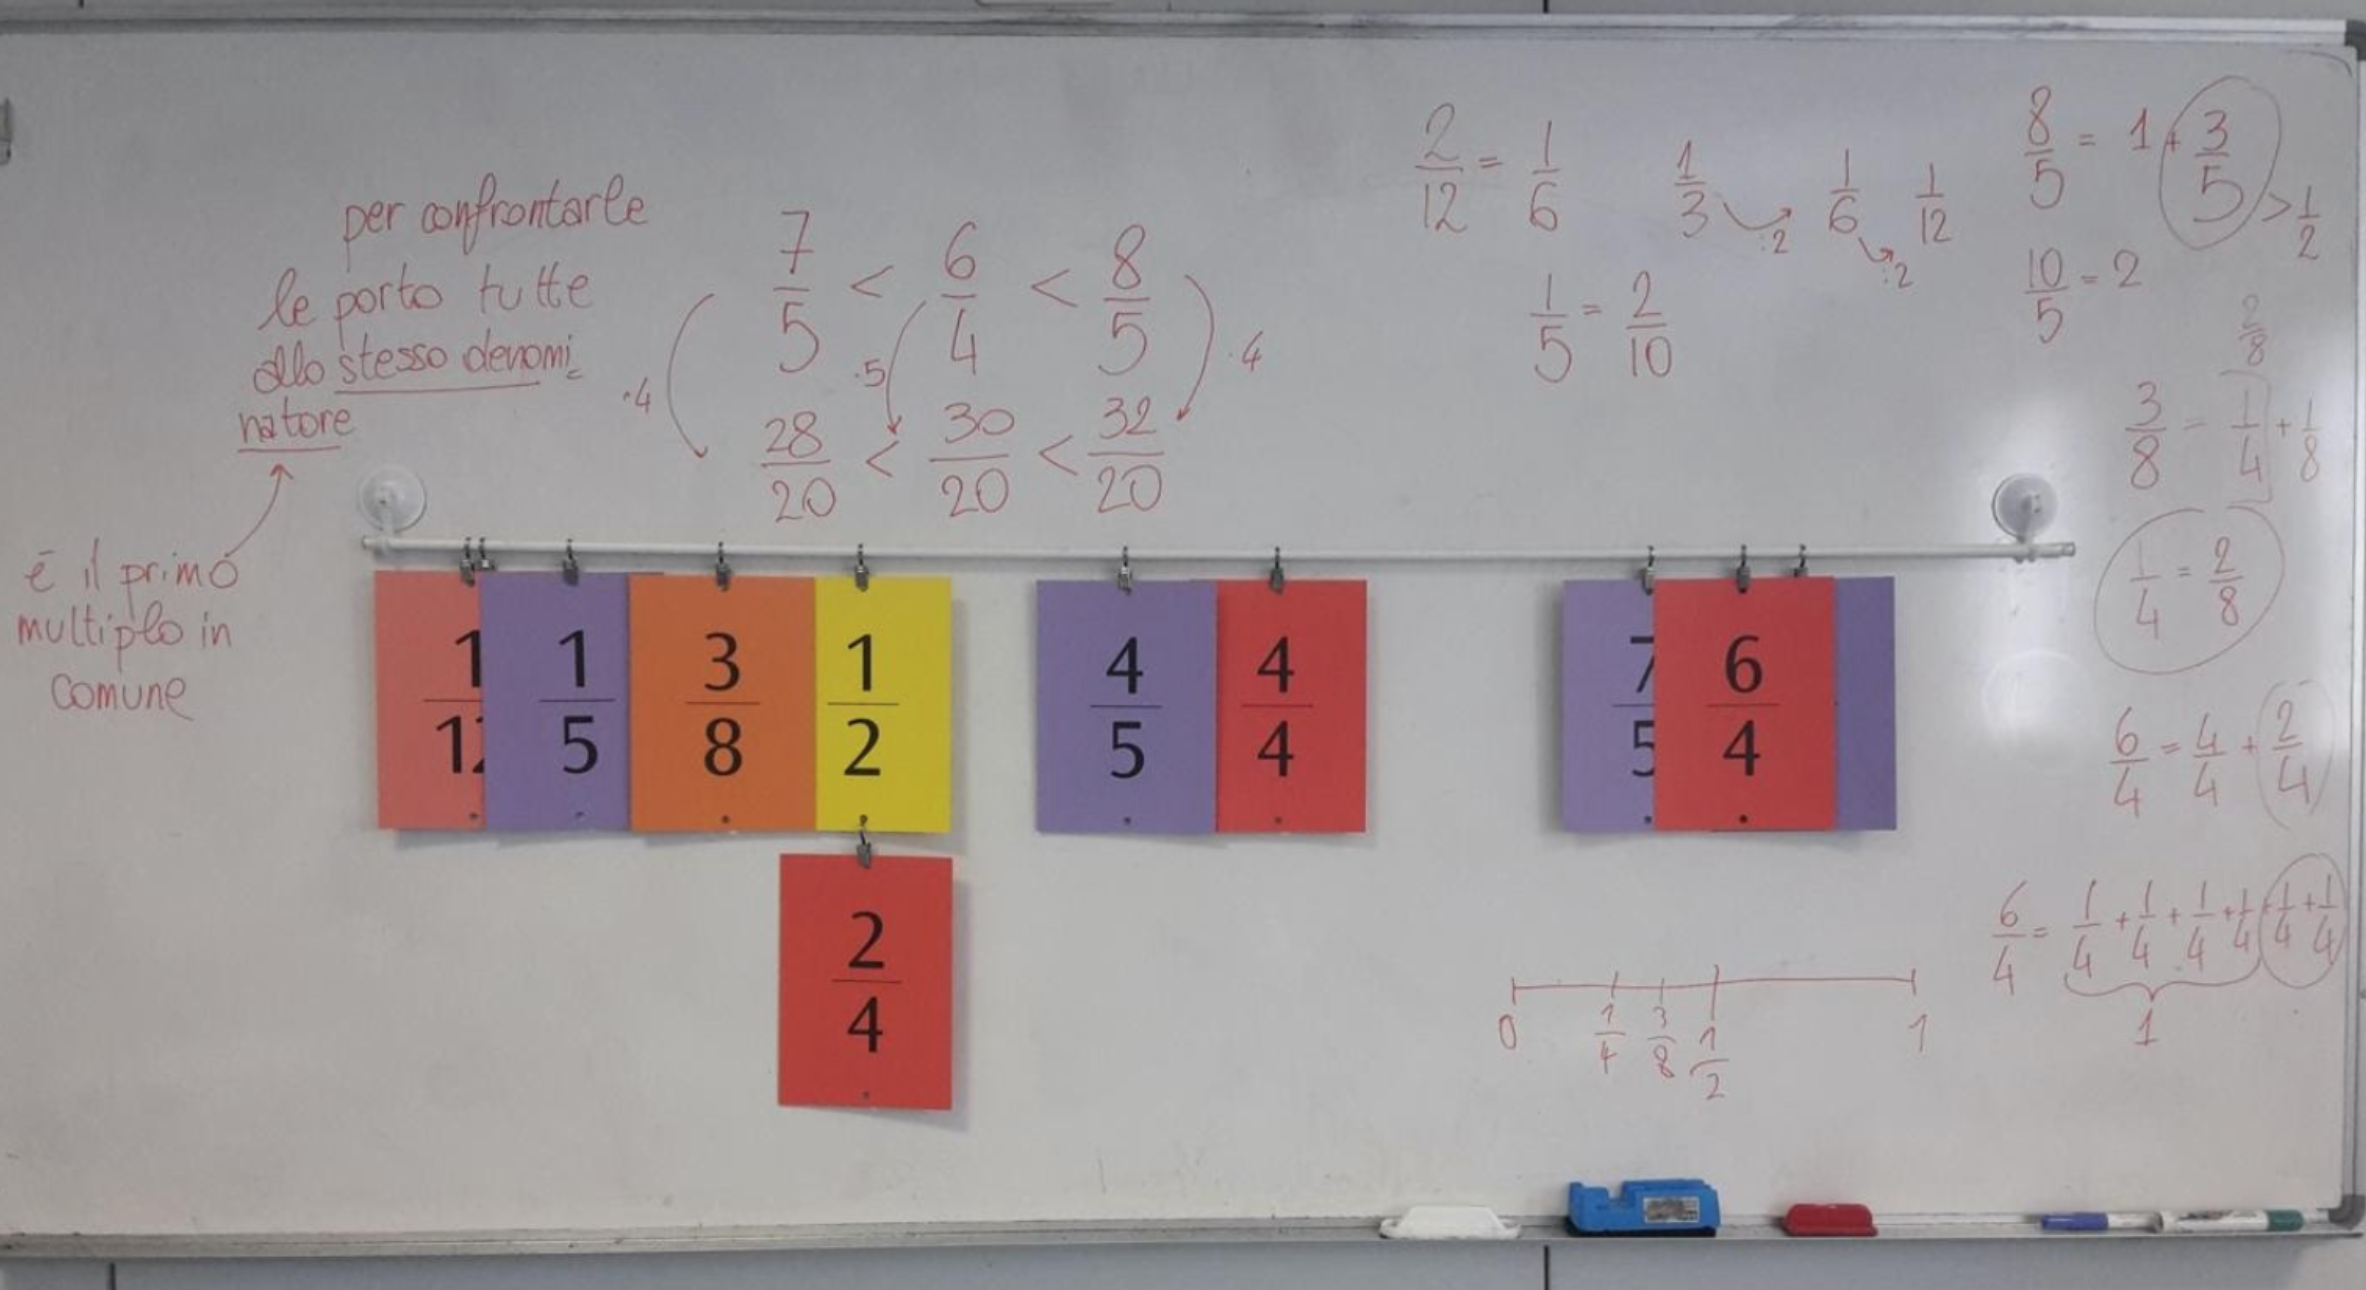 per confrontarle
le porto tutte
allo stesso denomi=
natore
è il primo
multiplo in
comune
7/5 < 6/4 < 8/5
·4 ·5 ·4
28/20 < 30/20 < 32/20
2/12 = 1/6
1/3 :2 1/6 :2 1/12
1/5 = 2/10
8/5 = 1 + 3/5 > 1/2
10/5 = 2
2/8
3/8 = 1/4 + 1/8
1/4 = 2/8
6/4 = 4/4 + 2/4
6/4 = 1/4 + 1/4 + 1/4 + 1/4 + 1/4 + 1/4
1
1/5
3/8
1/2
4/5
4/4
7/5
6/4
2/4
0 1/4 3/8 1/2 1